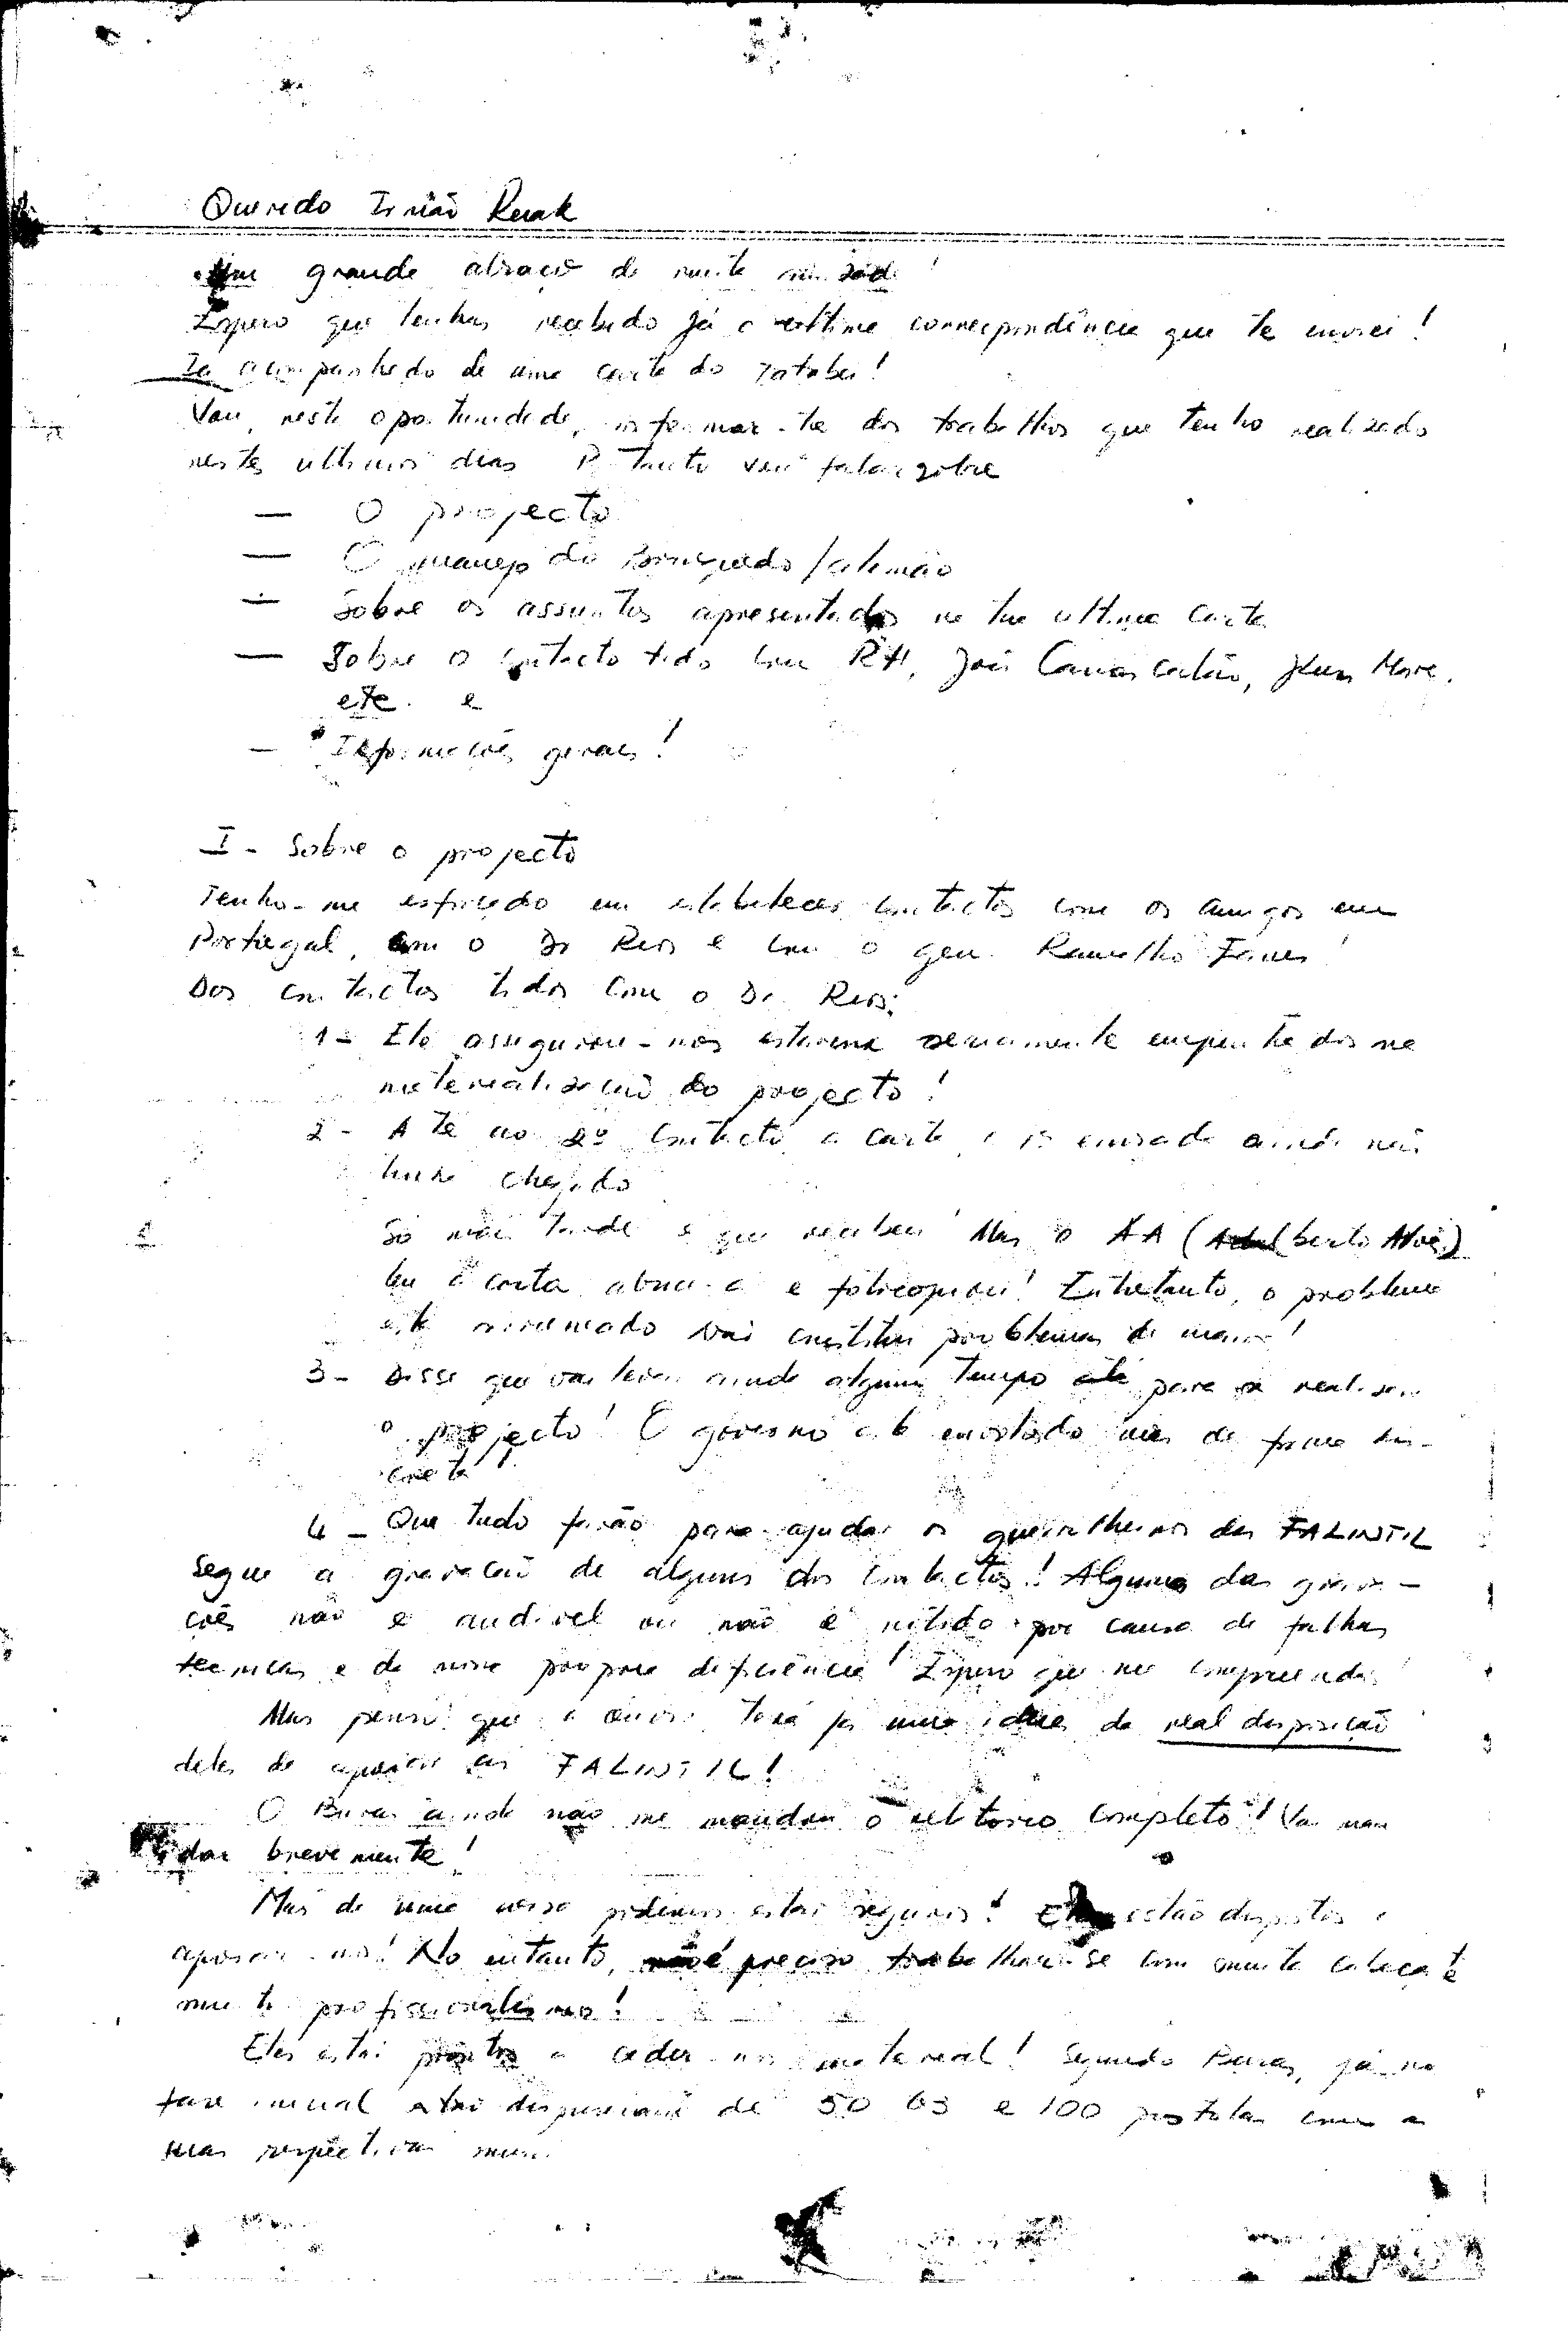 Querido Irmão Ruak
Um grande abraço de muita
Espero que tenhas recebido já a última correspondência que te enviei!
Ia acompanhado de uma carta do
Vou, nesta oportunidade, informar-te dos trabalhos que tenho realizado
nestes últimos dias Portanto vou falar sobre
— O projecto
— O do /alemão
— Sobre os assuntos apresentados na tua ultima carta
— Sobre o contacto tido com RH, João Carrascalão,
etc. e
— Informações gerais!
I - Sobre o projecto
Tenho-me esforçado em estabelecer contactos com os amigos em
Portugal, com o Dr Reis e com o gen. Ramalho Eanes!
Dos contactos tidos com o Dr. Reis:
1 - Ele assegurou-nos estarem seriamente empenhados na
materialização do projecto!
2 - Até ao 2º contacto a carta enviada ainda não
tinha chegado
Só mais tarde é que recebeu! Mas o AA (Adalberto Alves)
leu a carta, abriu-a e fotocopiou! Entretanto, o problema
está não constitui problemas de maior!
3 - Disse que vai levar ainda algum tempo até para se realizar
o projecto! O governo está mas de forma dis-
creta!
4 - Que tudo farão para ajudar os guerrilheiros das FALINTIL
Segue a gravação de alguns dos contactos! Algumas das grava-
ções não é audível ou não é nítido por causa de falhas
técnicas e da minha própria deficiência! Espero que me compreendas!
Mas penso que a ouvir terá já uma ideia da real disposição
deles de apoiar as FALINTIL!
O ainda não me mandou o relatório completo! Vai man
dar brevemente!
Mas de uma coisa podemos estar seguros! Eles estão dispostos a
apoiar-nos! No entanto, é preciso trabalhar-se com muita cabeça e
muito profissionalismo!
Eles estão prontos a ceder-nos material! Segundo já na
fase inicial disposição de 50 G3 e 100 pistolas com as
suas respectivas